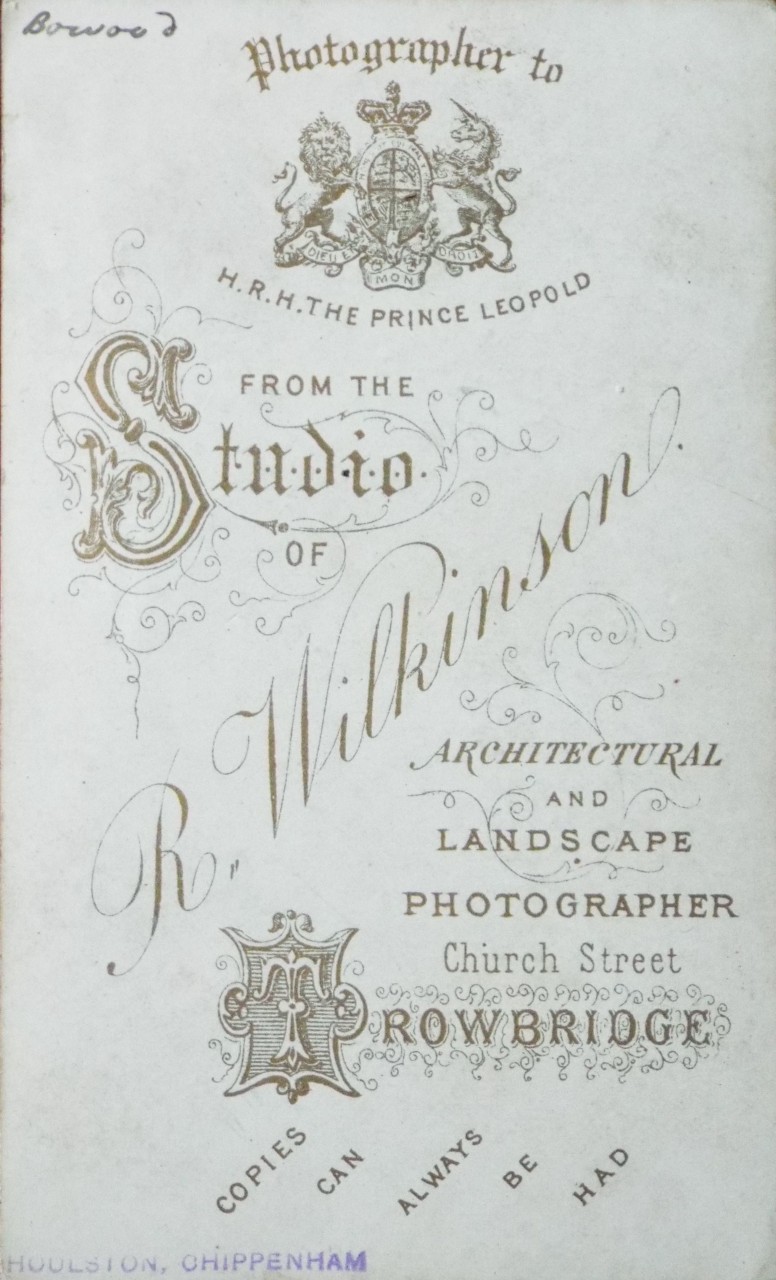 Bowood
Photographer to
DIEU ET MON DROIT
H.R.H. THE PRINCE LEOPOLD
FROM THE
Studio.
OF
R. Wilkinson.
ARCHITECTURAL
AND
LANDSCAPE
PHOTOGRAPHER
Church Street
TROWBRIDGE
COPIES CAN ALWAYS BE HAD
HOULSTON, CHIPPENHAM